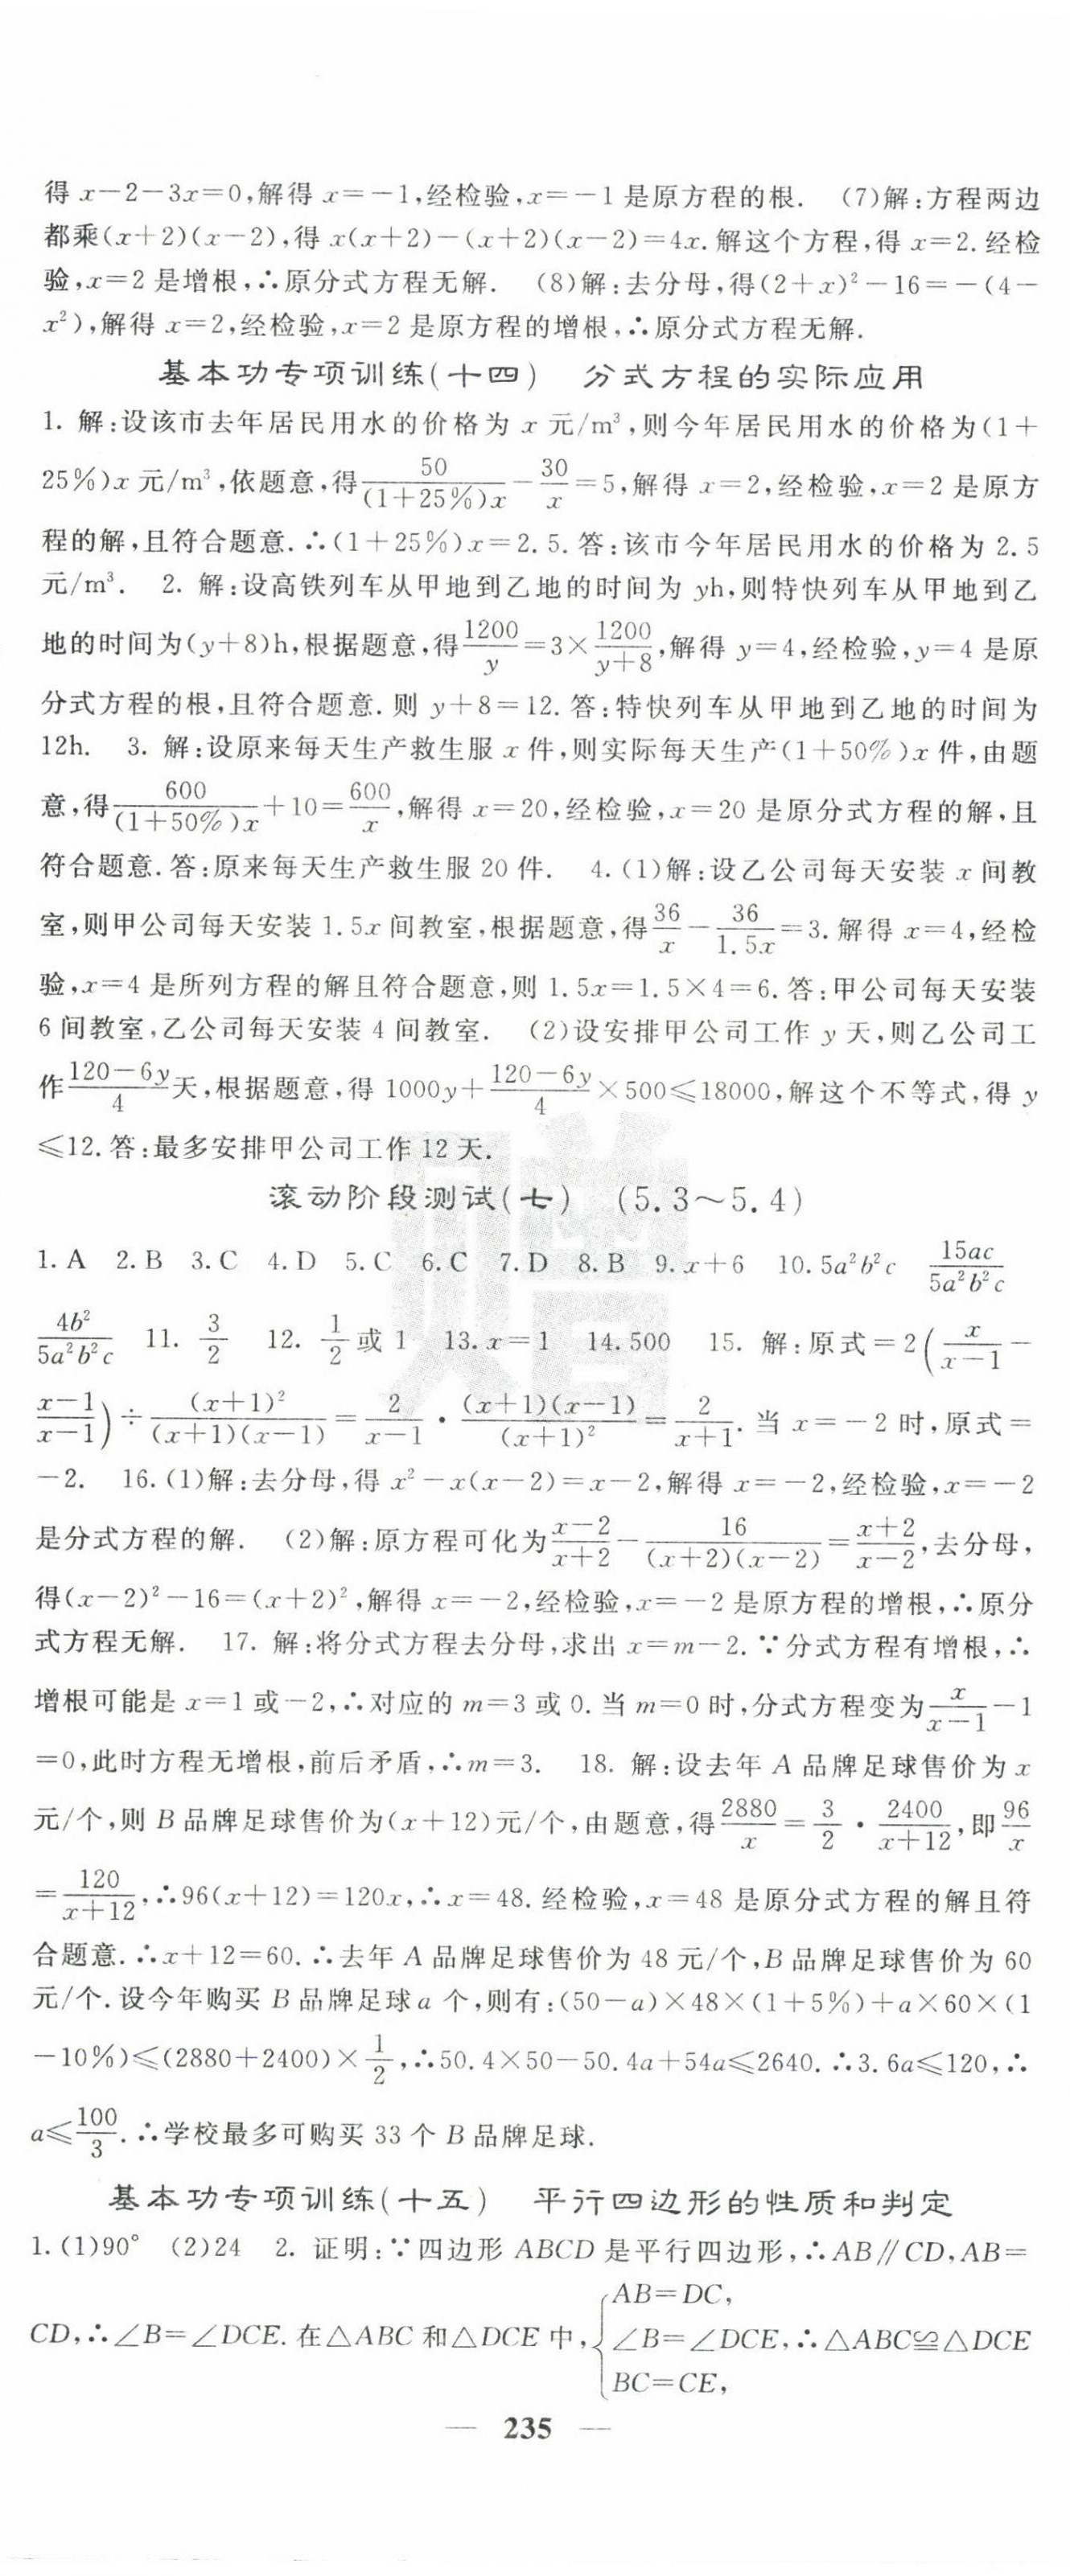 得 x－2－3x＝0,解得 x＝－1,经检验,x＝－1 是原方程的根. (7)解:方程两边
都乘(x＋2)(x－2),得 x(x＋2)－(x＋2)(x－2)＝4x.解这个方程,得 x＝2.经检
验,x＝2 是增根,∴原分式方程无解. (8)解:去分母,得(2＋x)²－16＝－(4－
x²),解得 x＝2,经检验,x＝2 是原方程的增根,∴原分式方程无解.
基本功专项训练(十四) 分式方程的实际应用
1. 解:设该市去年居民用水的价格为 x 元/m³,则今年居民用水的价格为(1＋
25%)x 元/m³,依题意,得50/((1＋25%)x)－30/x＝5,解得 x＝2,经检验,x＝2 是原方
程的解,且符合题意.∴(1＋25%)x＝2.5.答:该市今年居民用水的价格为 2.5
元/m³. 2. 解:设高铁列车从甲地到乙地的时间为 yh,则特快列车从甲地到乙
地的时间为(y＋8)h,根据题意,得1200/y＝3×1200/(y＋8),解得 y＝4,经检验,y＝4 是原
分式方程的根,且符合题意.则 y＋8＝12.答:特快列车从甲地到乙地的时间为
12h. 3. 解:设原来每天生产救生服 x 件,则实际每天生产(1＋50%)x 件,由题
意,得600/((1＋50%)x)＋10＝600/x,解得 x＝20,经检验,x＝20 是原分式方程的解,且
符合题意.答:原来每天生产救生服 20 件. 4.(1)解:设乙公司每天安装 x 间教
室,则甲公司每天安装 1.5x 间教室,根据题意,得36/x－36/(1.5x)＝3.解得 x＝4,经检
验,x＝4 是所列方程的解且符合题意,则 1.5x＝1.5×4＝6.答:甲公司每天安装
6 间教室,乙公司每天安装 4 间教室. (2)设安排甲公司工作 y 天,则乙公司工
作(120－6y)/4天,根据题意,得 1000y＋(120－6y)/4×500≤18000,解这个不等式,得 y
≤12.答:最多安排甲公司工作 12 天.
滚动阶段测试(七) (5.3～5.4)
1.A 2.B 3.C 4.D 5.C 6.C 7.D 8.B 9.x＋6 10.5a²b²c 15ac/(5a²b²c)
4b²/(5a²b²c) 11. 3/2 12. 1/2或 1 13.x＝1 14.500 15. 解:原式＝2(x/(x－1)－
(x－1)/(x－1))÷(x＋1)²/((x＋1)(x－1))＝2/(x－1)·(x＋1)(x－1)/(x＋1)²＝2/(x＋1).当 x＝－2 时,原式＝
－2. 16.(1)解:去分母,得 x²－x(x－2)＝x－2,解得 x＝－2,经检验,x＝－2
是分式方程的解. (2)解:原方程可化为(x－2)/(x＋2)－16/((x＋2)(x－2))＝(x＋2)/(x－2),去分母,
得(x－2)²－16＝(x＋2)²,解得 x＝－2,经检验,x＝－2 是原方程的增根,∴原分
式方程无解. 17. 解:将分式方程去分母,求出 x＝m－2.∵分式方程有增根,∴
增根可能是 x＝1 或－2,∴对应的 m＝3 或 0.当 m＝0 时,分式方程变为x/(x－1)－1
＝0,此时方程无增根,前后矛盾,∴m＝3. 18. 解:设去年 A 品牌足球售价为 x
元/个,则 B 品牌足球售价为(x＋12)元/个,由题意,得2880/x＝3/2·2400/(x＋12),即96/x
＝120/(x＋12),∴96(x＋12)＝120x,∴x＝48.经检验,x＝48 是原分式方程的解且符
合题意.∴x＋12＝60.∴去年 A 品牌足球售价为 48 元/个,B 品牌足球售价为 60
元/个.设今年购买 B 品牌足球 a 个,则有:(50－a)×48×(1＋5%)＋a×60×(1
－10%)≤(2880＋2400)×1/2,∴50.4×50－50.4a＋54a≤2640.∴3.6a≤120,∴
a≤100/3.∴学校最多可购买 33 个 B 品牌足球.
基本功专项训练(十五) 平行四边形的性质和判定
1.(1)90° (2)24 2. 证明:∵四边形 ABCD 是平行四边形,∴AB∥CD,AB＝
CD,∴∠B＝∠DCE.在△ABC 和△DCE 中,{AB＝DC, ∠B＝∠DCE, BC＝CE, ∴△ABC≌△DCE
— 235 —
赠